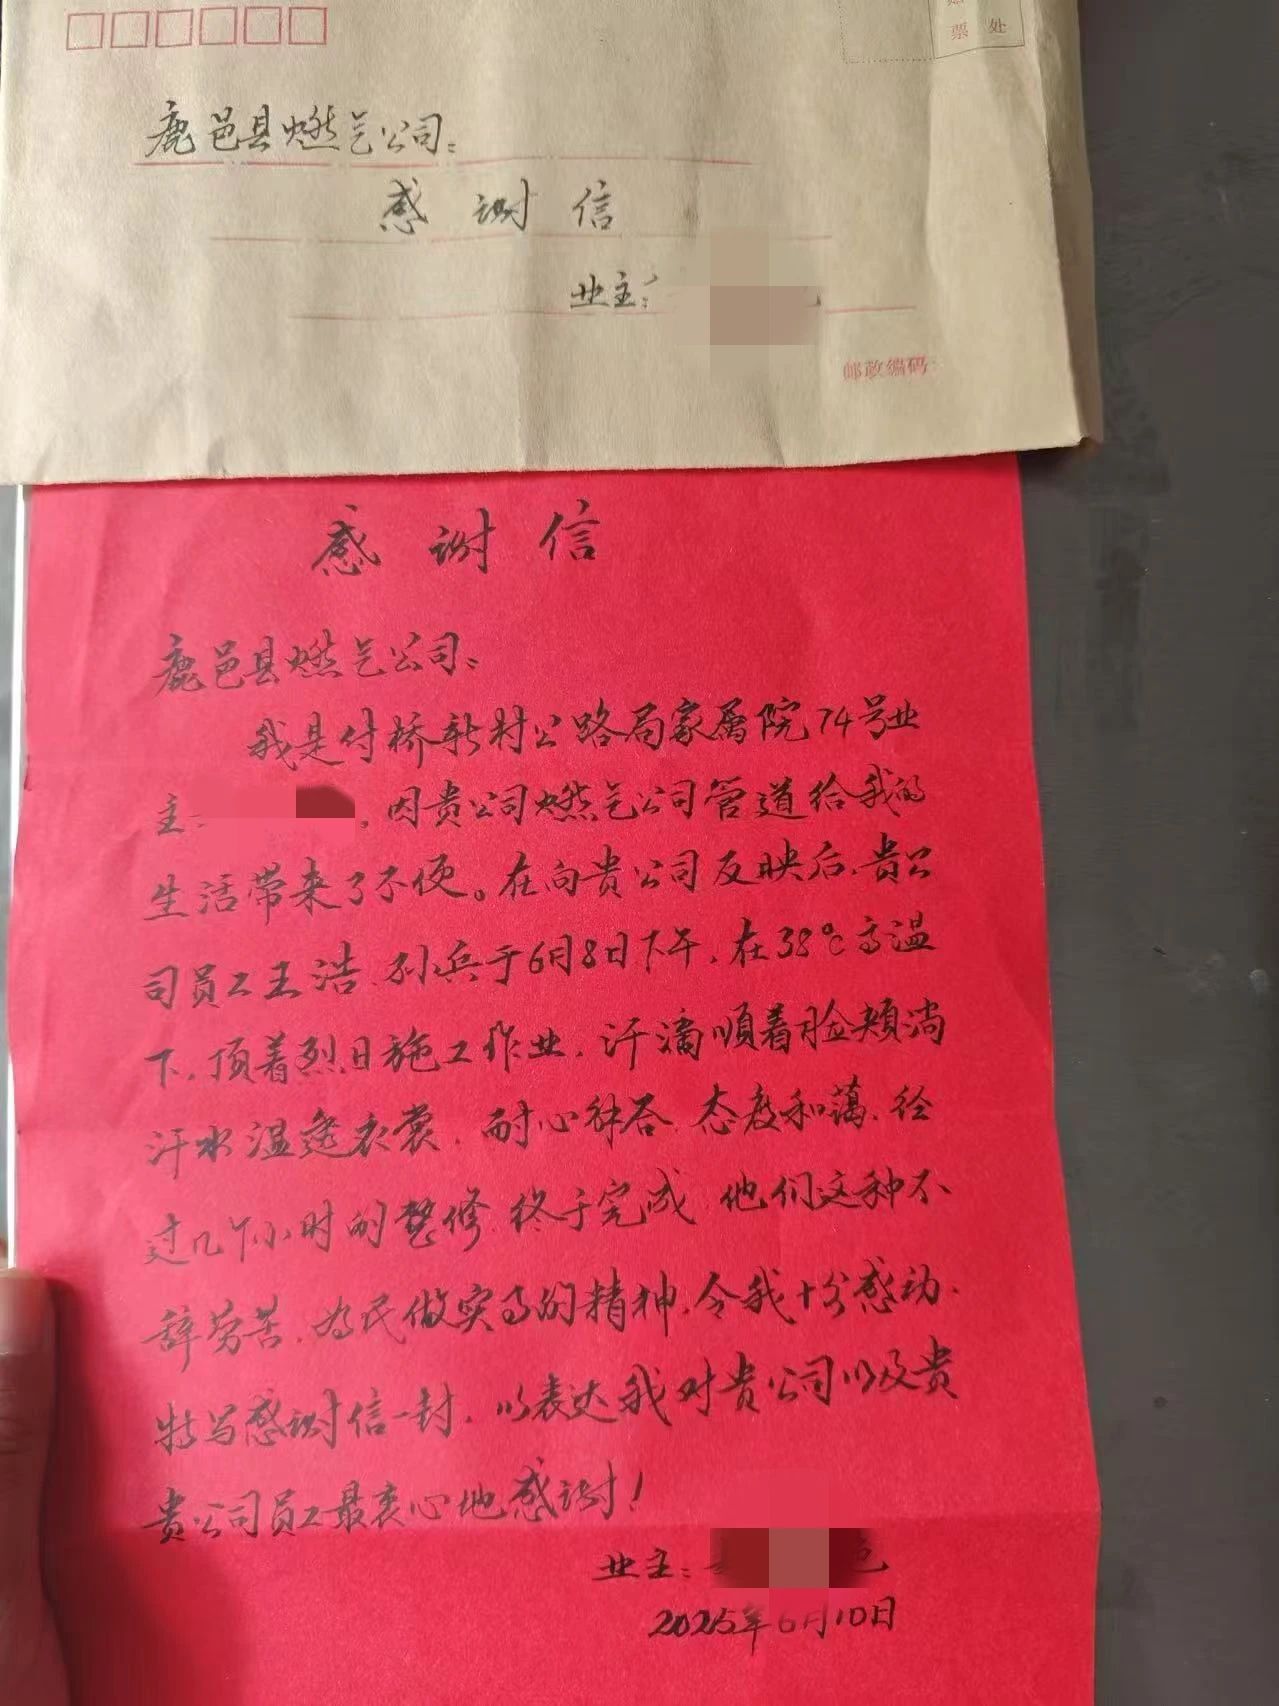 票 处
鹿邑县燃气公司：
感谢信
业主：
邮政编码：
感谢信
鹿邑县燃气公司：
我是付桥新村公路局家属院74号业
主：。因贵公司燃气公司管道给我的
生活带来了不便。在向贵公司反映后、贵公
司员工王浩、孙兵于6月8日下午，在38℃高温
下，顶着烈日施工作业，汗滴顺着脸颊淌
汗水湿透衣裳，耐心解答、态度和蔼、经
过几个小时的整修，终于完成，他们这种不
辞劳苦、为民做实事的精神，令我十分感动、
特写感谢信一封，以表达我对贵公司以及贵
贵公司员工最衷心地感谢！
业主：
2025年6月10日